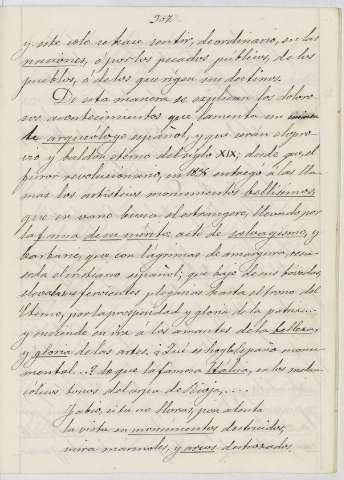 307.
y esto solo se hace sentir, de ordinario, en las
naciones, o por los pecados publicos, de los
pueblos, ó de los que rigen sus destinos.
De esta manera se explican los doloro-
sos acontecimientos que lamenta un
arqueólogo español, y que serán el opro-
vio y baldon eterno del siglo XIX; desde que, el
furor revolucionario, en 1835 entregó á las lla-
mas los artisticos monumentos bellisimos,
que en vano busca el extrangero, llevado por
la fama de su mérito, acto de salvagismo, y
barbarie, que con lágrimas de amargura, recu-
erda el cristiano español; que bajo de sus bóvedas,
elevaba sus fervientes plegarias hasta el trono del
Eterno, por la prosperidad y gloria de la patria...
y enciende en ira a los amantes de la belleza,
y gloria de las artes. ¿Qué es hoy la España monu-
mental...? Lo que la famosa Italica, en los melan-
cólicos tonos del arpa de Rioja,....
Fabio, si tu no lloras, pon atenta
la vista en monumentos destruidos,
mira marmoles, y arcos destrozados,